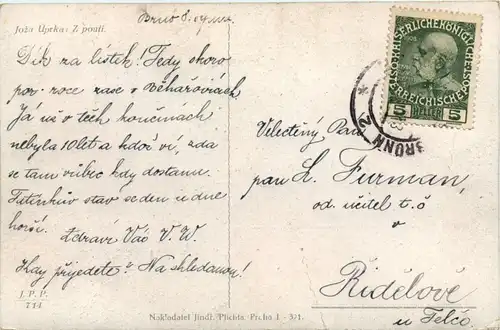 Joža Úprka: Z pouti.
Brno 8.
Dík za lístek! Tedy skoro
po roce zase v Běhařovicích
Já už v těch končinách
nebyla 10 let a kdož ví, zda
se tam vůbec kdy dostanu.
Tatínkův stav se den ze dne
horší.
Zdraví Vás V. W.
Kdy přijedete? Na shledanou!
J. P. P.
714
Nakladatel Jindř. Plichta, Praha I - 371.
KAISERLICHE KÖNIGLICHE
ÖSTERREICHISCHE POST
1908
5 HELLER 5
BRÜNN 2
Velectěný Pan
pan L. Furman,
od. učitel t. č
v
Řídelově
u Telče